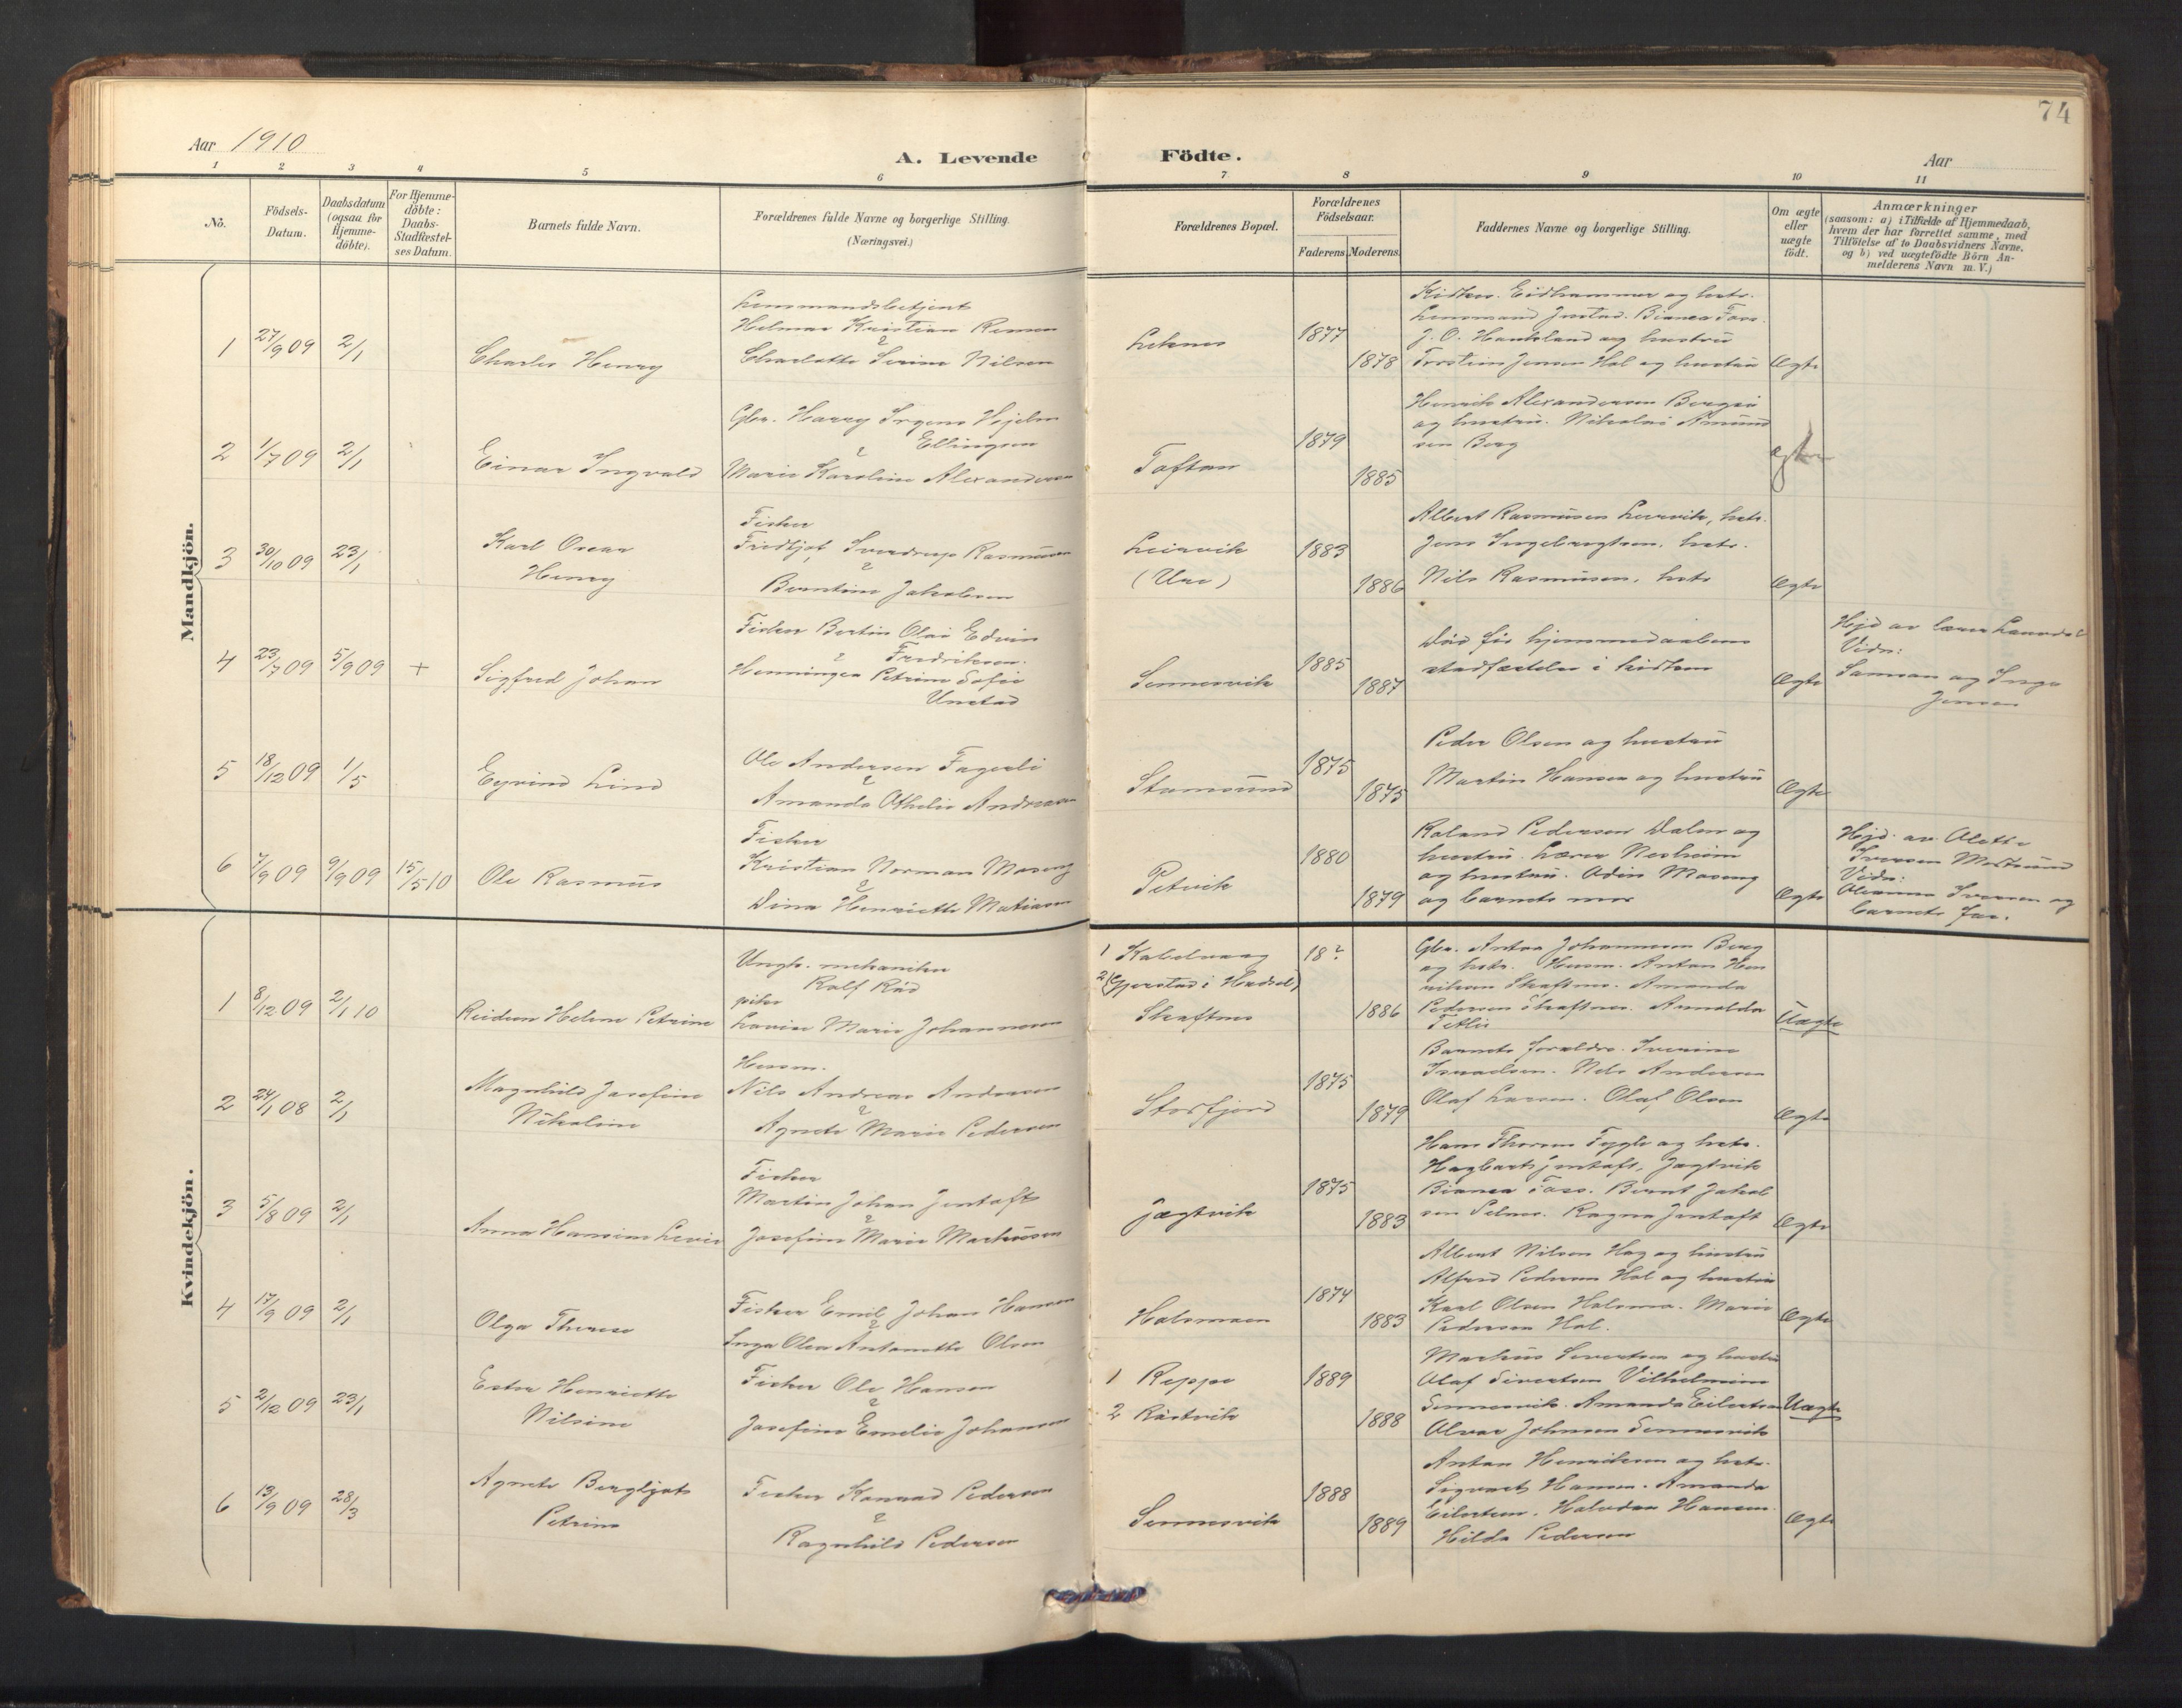 74
Aar 1910
A. Levende Födte.
Aar
1 2 3 4 5 6 7 8 9 10 11
No.
Födsels-
Datum.
Daabsdatum
(ogsaa for
Hjemme-
döbte).
For Hjemme-
döbte:
Daabs-
Stadfæstel-
ses Datum.
Barnets fulde Navn.
Forældrenes fulde Navne og borgerlige Stilling.
(Næringsvei.)
Forældrenes Bopæl.
Forældrenes
Födselsaar.
Faderens. Moderens.
Faddernes Navne og borgerlige Stilling.
Om ægte
eller
uægte
födt.
Anmærkninger
(saasom: a) i Tilfælde af Hjemmedaab,
hvem der har forrettet samme, med
Tilföielse af to Daabsvidners Navne.
og b) ved uægtefödte Börn An-
melderens Navn m. V.)
Mandkjön.
1 27/9 09 2/1
Charles Henry
Lensmandsbetjent
Helmer Kristian Remen
&
Charlotte Serine Nilsen
Leknes
1877
1878
Lensmand Justad. Bianca Foss.
J. O. Haukland og hustru
Torstein Jensen Hol og hustru
Ægte
2 1/7 09 2/1
Einar Ingvald
Gbr. Harry Hjelm
Ellingsen
&
Marie Karoline Alexandersen
Toftan
1879
1885
Henrik Alexandersen
og hustru. Nikolai Amund
sen Berg
ægte
3 30/10 09 23/1
Karl Oscar
Henry
Fisker
Fridtjof Sverdrup Rasmussen
&
Berntine Jakobsen
Leirvik
(Ure)
1883
1886
Albert Rasmusen Leirvik, hstr.
Jens Ingebrigtsen, hstr.
Nils Rasmusen, hstr
Ægte
4 23/7 09 5/9 09 +
Sigfred Johan
Fisker Bertin Olai Edvin
& Fredriksen.
Henninga Petrine Sofie
Unstad
Sennesvik
1885
1887
Död för hjemmedaabens
stadfæstelse i kirken
Ægte
Hjd av lærer
Vidn:
og Inga
Jensen
5 18/12 09 1/5
Eyvind Lind
Ole Andersen Fagerli
&
Amanda Othelie Andreasen
Stamsund
1875
1875
Peder Olsen og hustru
Martin Hansen og hustru
Ægte
6 7/9 09 9/9 09 15/5 10
Ole Rasmus
Fisker
Kristian Norman Moseng
&
Dina Henriette Matiasen
Petvik
1880
1879
Roland Pedersen Dalen og
hustru. Lærer Nesheim
og hustru. Odin Moseng
og barnets mor
Ægte
Hjd. av Olette
Iversen Mortsund
Vidn:
Iversen og
barnets far.
Kvindekjön.
1 8/12 09 2/1 10
Reidun Helene Petrine
Ungk. mekaniker
Rolf
pike
Lovise Marie Johannesen
1 Kabelvaag
2 (Gjerstad i Hadsel)
Skaftnes
18?
1886
Gbr. Anton Johannesen Berg
og hstr. Husm. Anton Hen
riksen Skaftnes. Amanda
Pedersen Skaftnes.
Uægte
2 24/1 08 2/1
Magnhild Josefine
Nikoline
Husm.
Nils Andreas Andreasen
&
Agnete Marie Pedersen
Storfjord
1875
1879
Barnets forældre. Iverine
Nils Andersen
Olaf Larsen. Olaf Olsen
Ægte
3 5/8 09 2/1
Anna Hansine Lovise
Fisker
Martin Johan Jentoft
&
Josefine Marie Markusen
Jægtvik
1875
1883
Hans Thoresen Fygle og hstr.
Hagbart Jentoft, Jægtvik
Bianca Foss. Bernt Jakob
sen Ragna Jentoft
Ægte
4 17/9 09 2/1
Olga Therese
Fisker Emil Johan Hansen
&
Inga Olea Antonette Olsen
Holsmoen
1874
1883
Albert Nilsen Hag og hustru
Alfred Pedersen Hol og hustru
Karl Olsen Holsmo. Marie
Pedersen Hol.
Ægte
5 2/12 09 23/1
Ester Henriette
Nilsine
Fisker Ole Hansen
&
Josefine Emelie Johansen
1 Reppe
2 Röstvik
1889
1888
Markus Sivertsen og hustru
Olaf Sivertsen Vilhelmine
Sennesvik. Amanda Eilertsen
Olvar Johnsen Sennesvik
Uægte
6 13/9 09 28/3
Agnete Bergljot
Petrine
Fisker Konrad Pedersen
&
Ragnhild Pedersen
Sennesvik
1888
1889
Anton Henriksen og hstr.
Sigvart Hansen. Amanda
Eilertsen. Halvdan Hansen.
Hilda Pedersen
Ægte